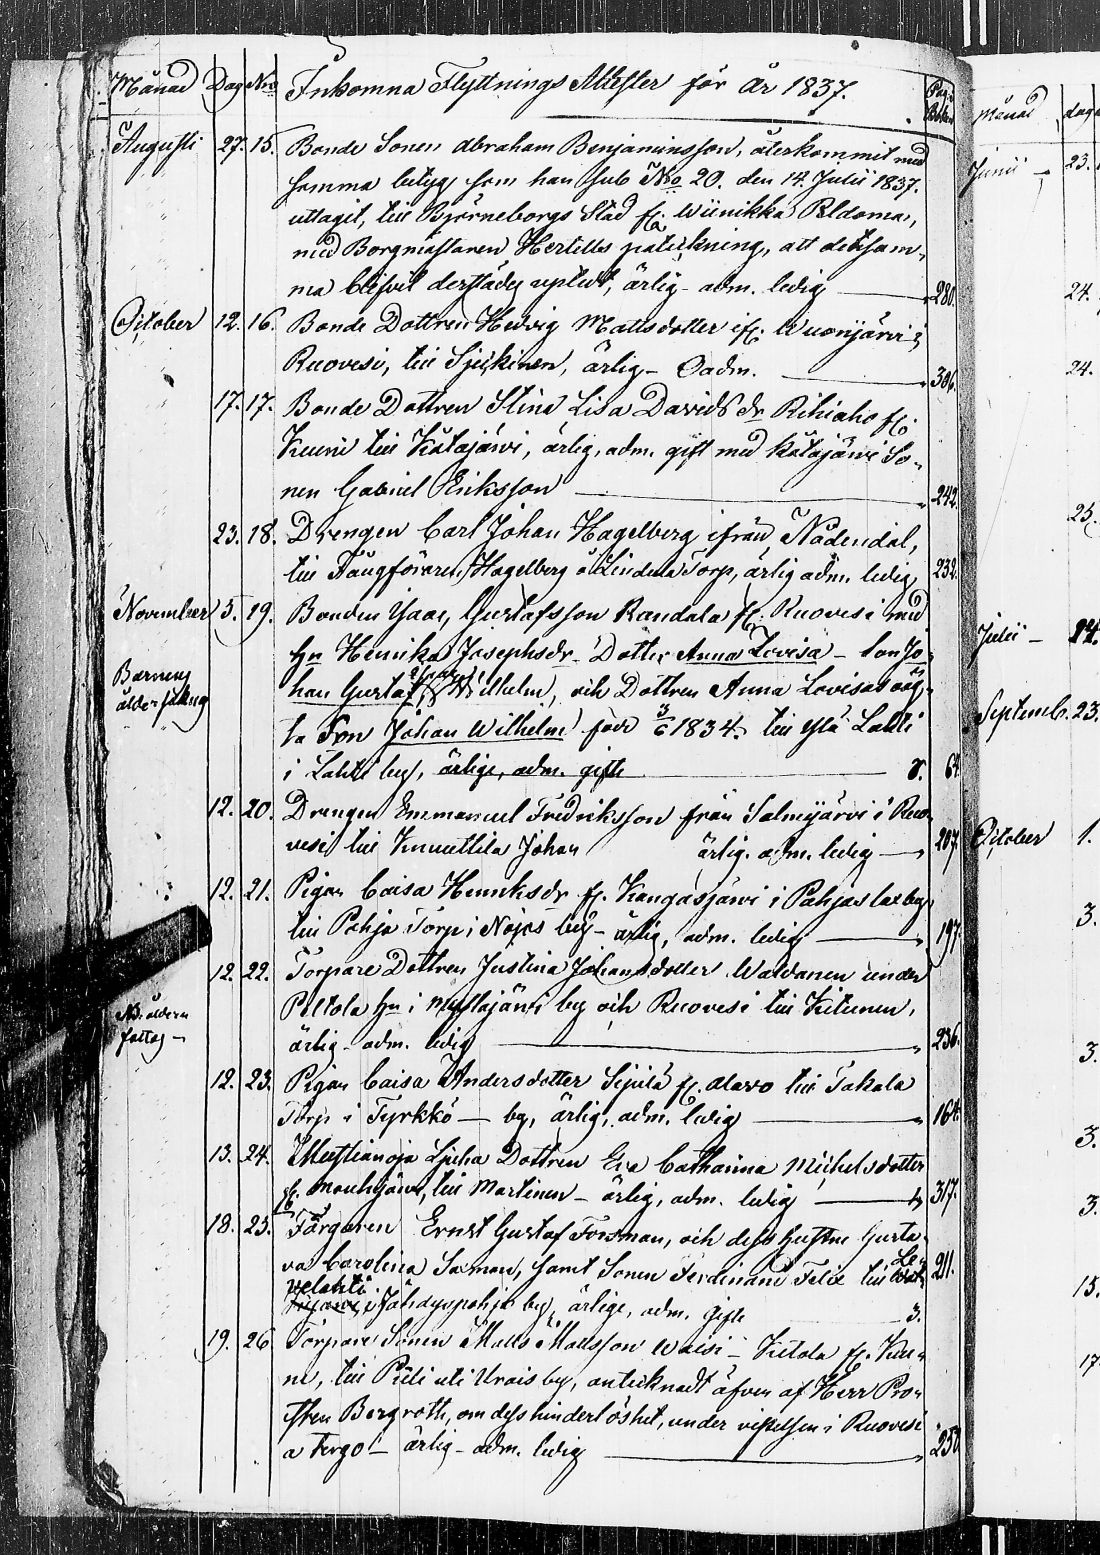 Månad Dag Nro Inkomna Flyttnings Attester för År 1837. Pag. i Boken
Augusti 27. 15. Bonde Sonen Abraham Benjaminsson, återkommit med
samma betyg som han sub No 20. den 14. Julii 1837.
uttagit, till Björneborgs Stad fr. Wiinikka Peldoma,
med Borgmästaren Hertells påteckning, att detsam-
ma blifvit derstädes uplyst, ärlig - adm. ledig 280.
October 12. 16. Bonde Dottren Hedvig Mattsdotter ifr. Wuorijärvi i
Ruovesi, till Sjukinen, ärlig - Oadm. 306.
17. 17. Bonde Dottren Stina Lisa Davids dr Rihiaho fr.
Keuru till Kätajärvi, ärlig, adm. gift med Kätajärvi So-
nen Gabriel Eriksson 242.
23. 18. Drengen Carl Johan Hagelberg ifrån Nådendal,
till Hagelberg å Lindula Torp, ärlig adm. ledig 232.
November 5. 19. Bonden Isaac Gustafsson Randala fr. Ruovesi med
hu Henrika Josephsdr Dotter Anna Lovisa - Son Jo-
han Gustaf Wilhelm, och Dottren Anna Lovisas oäg-
Barnens
ålder
ta Son Johan Wilhelm född 3/6 1834. till Ylä Lahti
i Lahti by, ärlige, adm. gifte 8. 64.
12. 20. Drengen Emmanuel Fredriksson från Salmijärvi i Ruo-
vesi till Knuuttila Johan ärlig. adm. ledig 207.
12. 21. Pigan Caisa Henriksdr fr. Kangasjärvi i Pohjaslax by
till Pohja Torp i by - ärlig, adm. ledig 197.
12. 22. Torpare Dottren Justina Johansdotter Waldanen under
Peltola hn i by och Ruovesi till Kitunen,
NB. åldern
fattas -
ärlig - adm. ledig 236.
12. 23. Pigan Caisa Andersdotter Sipilä fr. Alavo till Takala
Torp i Tyrkkö - by, ärlig, adm. ledig 164.
13. 24. Mustianoja Ljuha Dottren Eva Catharina Michelsdotter
fr. Mouhijärvi, till Martinen - ärlig, adm. ledig 317.
18. 25. Färgaren Ernst Gustaf Forsman, och dess hustru Gusta-
va Carolina Saxman, samt Sonen Ferdinand Felix till 211.
i Jähdyspohja by, ärlige, adm. gifte 3.
19. 26 Torpare Sonen Matts Mattsson Waisi - Kitola fr. Keu-
ru, till Pidi uti Wrais by, antecknadt äfven af Herr Pro-
sten Bergroth, om dess hinderlöshet, under vistelsen i Ruovesi
a tergo - ärlig - adm. ledig 250
Månad dag
Junii - 23.
24.
24.
25.
Julii - 14.
Septemb. 23.
October 1.
3.
3.
3.
3.
15.
17